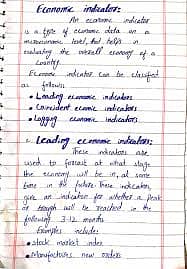 Economic indicators:
An economic indicator
is a type of economic data on a
macroeconomic level, that helps in
evaluating the overall economy of a
country.
Economic indicator can be classified
as follows:
• Leading economic indicators
• Coincident economic indicators
• Lagging economic indicators
Leading economic indicators:
These indicators are
used to forcast at what stage
the economy will be in, at some
time in the future. These indicators,
give an indication for whether a peak
or trough will be reached in the
following 3-12 months
Examples include:
• Stock market index
• Manufactures new orders